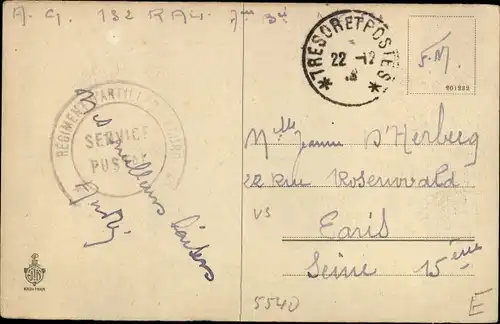 A. G. 132 RAL. 7me Bie
TRESOR ET POSTES
22 -12
F.M.
901282
RÉGIMENT D'ARTILLERIE LOURD
SERVICE
POSTAL
Mes meilleurs baisers
Melle Jeanne D'Herberg
22 Rue Rosenwald
VS
Paris
Seine 15ème
5540
E